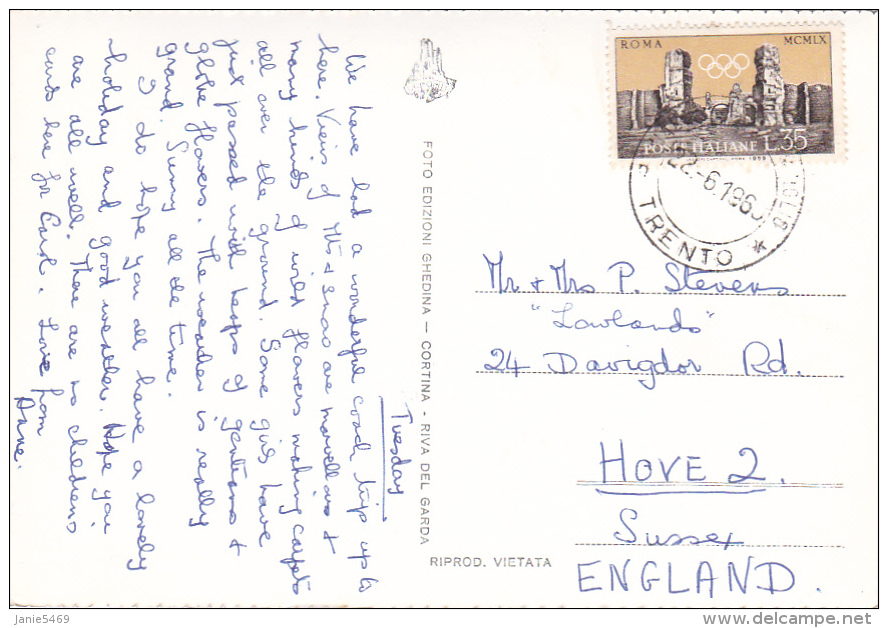 Tuesday
We have had a wonderful coach trip up to
here. Views of Mts & snow are marvellous &
many kinds of wild flowers making carpets
all over the ground. Some girls have
just passed with heaps of gentians &
globe flowers. The weather is really
grand. Sunny all the time.
I do hope you all have a lovely
holiday and good weather. Hope you
are all well. There are no childrens
cards here for Carol. Love from
Anne.
FOTO EDIZIONI GHEDINA — CORTINA - RIVA DEL GARDA
RIPROD. VIETATA
ROMA MCMLIX
POSTE ITALIANE L.35
22-6.196
TRENTO *
Mr. & Mrs P. Stevens
"Lowlands"
24 Davigdor Rd.
HOVE 2.
Sussex
ENGLAND.
Janie5469
www.delcampe.net